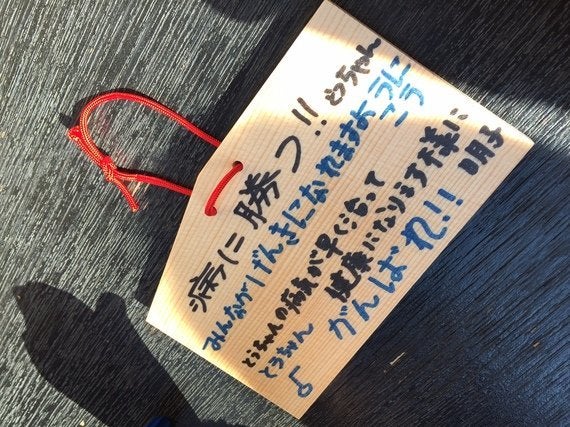 病に勝つ!! とうちゃん
みんながげんきになれますように
こう
とうちゃんの病気が早く治って
健康になります様に 明子
とうちゃん がんばれ!!